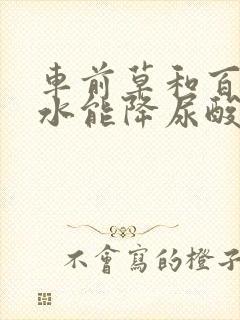 車前草和百
水能降尿酸
不會寫的橙子